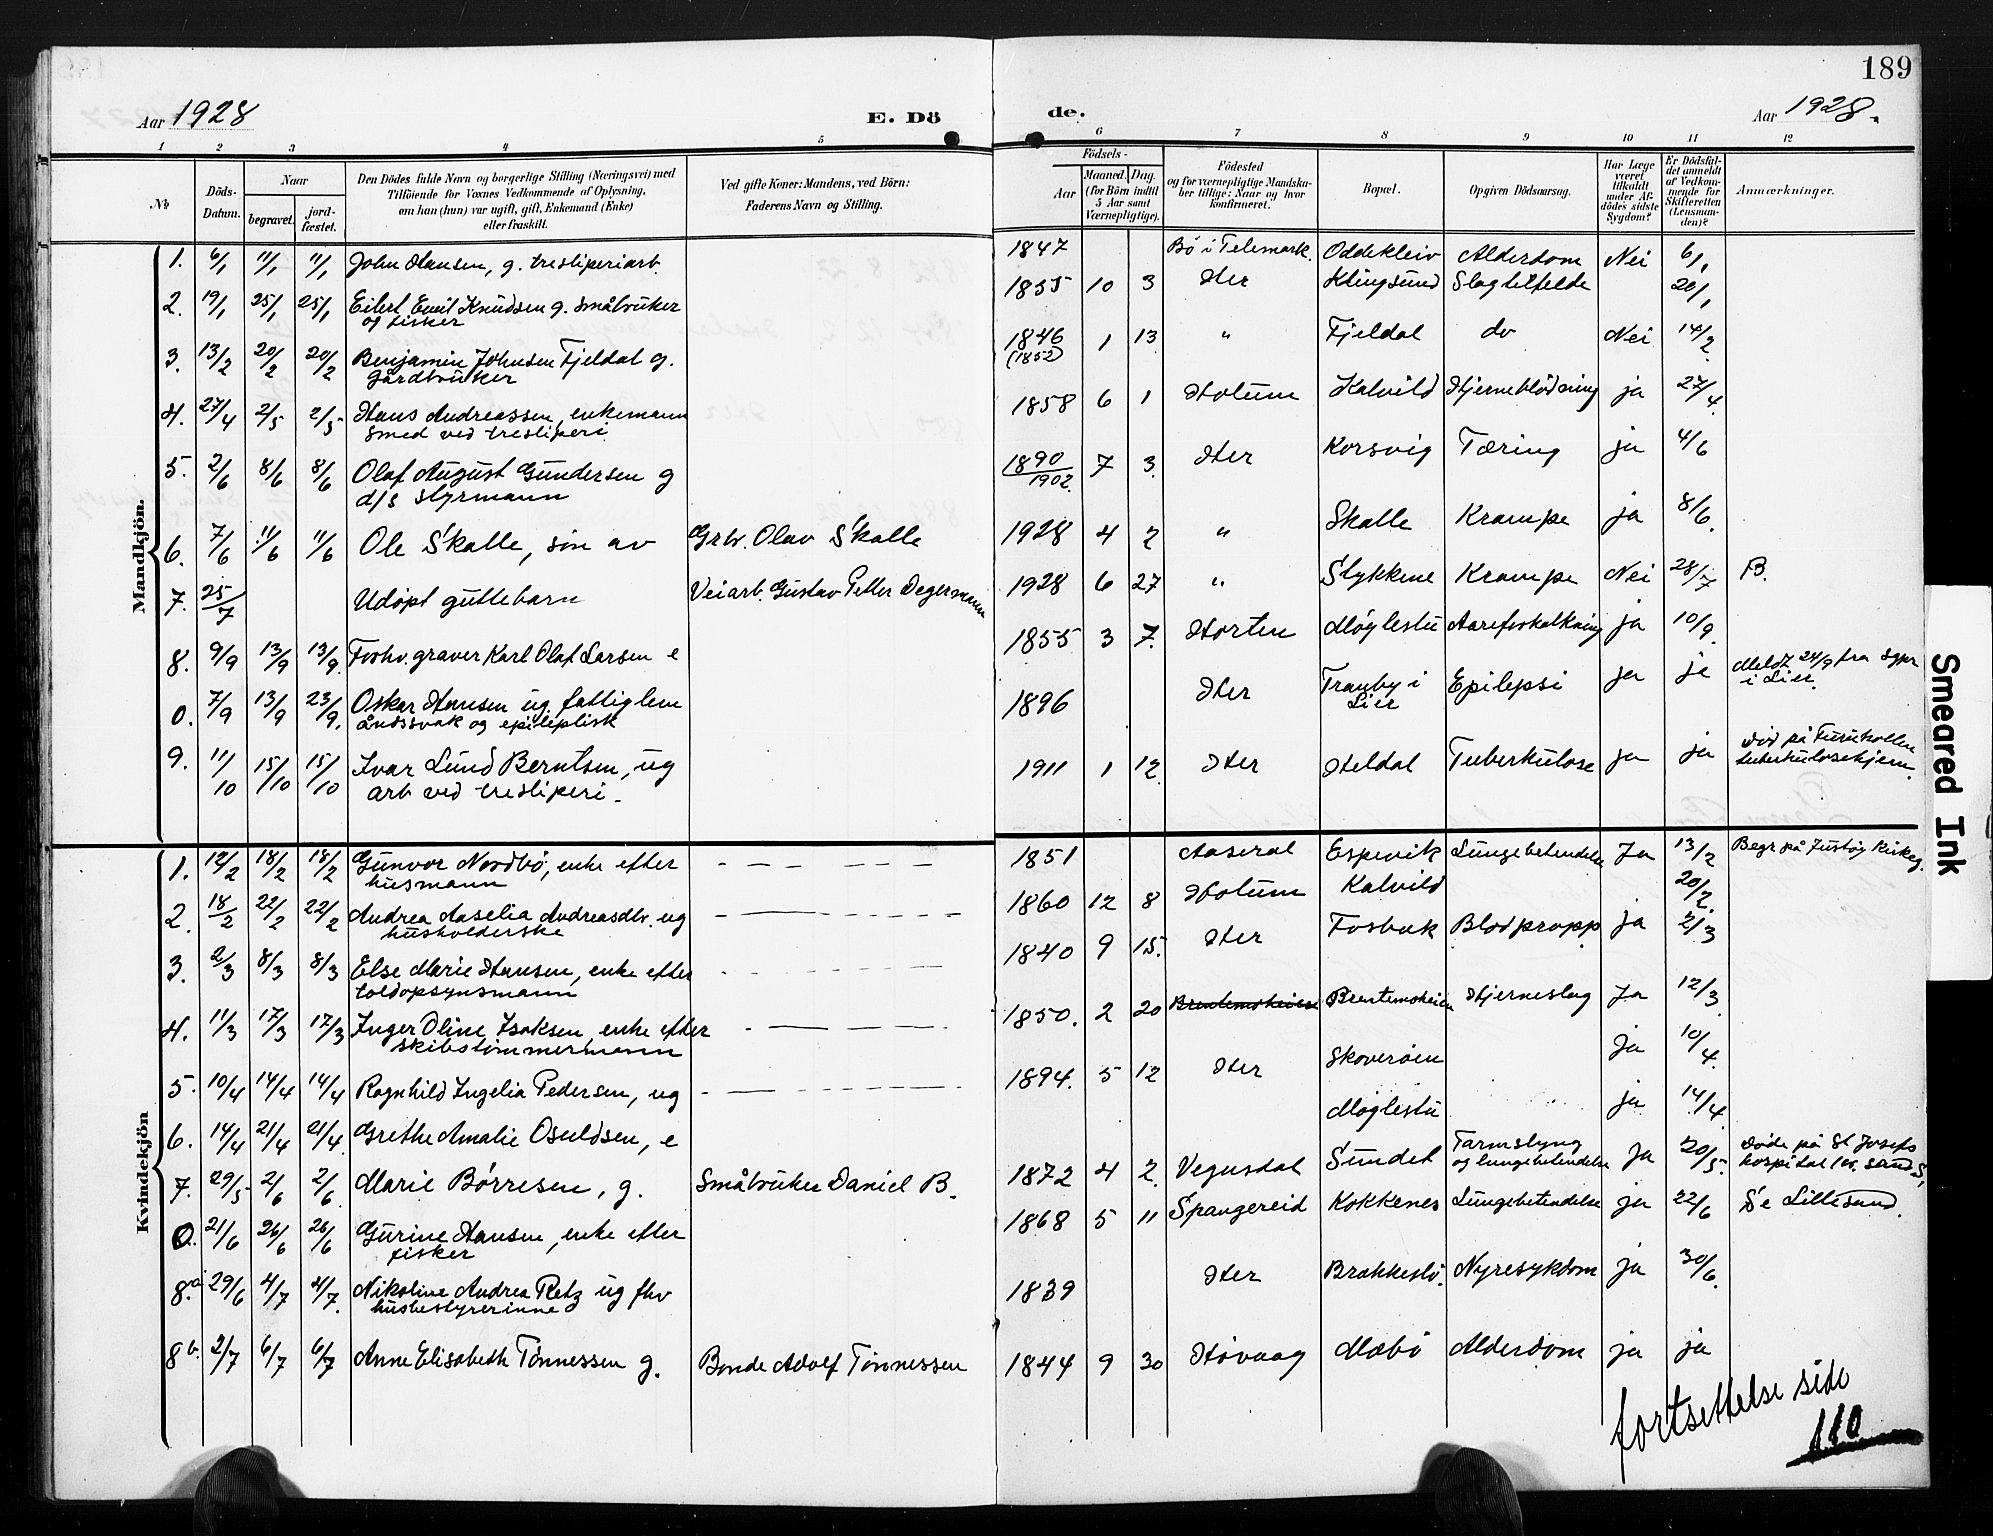 189
Aar 1928
E. Dö
de.
Aar 1928.
1 2 3 4 5 6 7 8 9 10 11 12
No
Döds-Datum.
Naar
begravet.
jord-fæstet.
Den Dödes fulde Navn og borgerlige Stilling (Næringsvei) med
Tilföiende for Voxnes Vedkommende af Oplysning,
om han (hun) var ugift, gift, Enkemand (Enke)
eller fraskilt.
Ved gifte Koner: Mandens, ved Börn:
Faderens Navn og Stilling.
Födsels-
Aar
Maaned. Dag.
(for Börn indtil
5 Aar samt
Værnepligtige).
Födested
og for værnepligtige Mandska-
ber tillige: Naar og hvor
konfirmeret.
Bopæl.
Opgiven Dödsaarsag.
Har Læge
været
tilkaldt
under Af-
dödes sidste
Sygdom?
Er Dödsfal-
det anmeldt
af Vedkom-
mende for
Skifteretten
(Lensman-
den)?
Anmærkninger.
Mandkjön.
1. 6/1 11/1 11/1 John Hansen, g. tresliperiarb. 1847 Bö i Telemark. Oddekleiv Alderdom Nei 6/1
2. 19/1 25/1 25/1 Eilert Emil Knudsen g. småbruker 1855 10 3 Her Klingsund Slagtilfelde 20/1
og fisker
3. 13/2 20/2 20/2 Benjamin Johnsen Fjeldal g. 1846 1 13 " Fjeldal do Nei 14/2
gårdbruker (1852)
4. 27/4 2/5 2/5 Hans Andreassen, enkemann 1858 6 1 Holum Kalvild Hjerneblödning ja 27/4
smed ved tresliperi
5. 2/6 8/6 8/6 Olaf August Gundersen g 1890/1902. 7 3 Her Korsvig Tæring ja 4/6
d/s styrmann
6. 7/6 11/6 11/6 Ole Skalle, sön av Grbr. Olav Skalle 1928 4 2 " Skalle Krampe ja 8/6.
7. 25/7 Udöpt guttebarn Veiarb. Gustav Petter Degermann 1928 6 27 " Stykkene Krampe Nei 28/7 B.
8. 9/9 13/9 13/9 Forhv. graver Karl Olaf Larsen e 1855 3 7. Horten Möglestu Aareforkalkning ja 10/9.
0. 7/9 13/9 23/9. Oskar Hansen ug. fattiglem 1896 Her Tranby i Lier Epilepsi ja ja Meldt 24/9 fra Spr i Lier.
åndssvak og epileptisk
9. 11/10 15/10 15/10 Ivar Lund Berntsen, ug 1911 1 12 Her Heldal Tuberkulose ja ja Död på
arb ved tresliperi. tuberkulosehjem.
Kvindekjön
1. 12/2 18/2 18/2 Gunvor Nordbö, enke efter – – – – – 1851 Aaseral Espevik Lungebetendelse Ja 13/2 Begr på Justöy kirkeg.
husmann
2. 18/2 22/2 22/2 Andrea Aaselia Andreasdtr. ug – – – – 1860 12 8 Holum Kalvild 20/2.
husholderske
3. 2/3 8/3 8/3 Else Marie Hansen, enke efter – – – – 1840 9 15. Her Fosbæk Blodpropp ja 2/3
toldopsynsmann
4. 11/3 17/3 17/3 Inger Oline Isaksen, enke efter – – – – 1850. 2 20 Brentemoheien Brentemoheien Hjerneslag Ja 12/3.
skibstömmermann
5. 10/4 14/4 14/4 Ragnhild Ingelia Pedersen, ug – – – – 1894. 5 12 Her Skoveröen ja 10/4.
6. 14/4 21/4 21/4 Grethe Amalie Osuldsen, e Möglestu ja 14/4.
7. 29/5 2/6 2/6. Marie Börresen, g. Småbruker Daniel B. 1872 4 2. Vegusdal Sundet Tarmslyng og lungebetendelse Ja 20/5. Döde på St Josefs
hospital
0. 21/6 26/6 26/6 Gurine Hansen, enke efter 1868 5 11 Spangereid Kokkenes Lungebetendelse ja 22/6 Se Lillesand.
fisker
8.a 29/6 4/7 4/7. Nikoline Andrea Retz ug fhv 1839 Her Brækkestö. Nyresykdom ja 30/6.
husbestyrerinne
8b. 2/7 6/7 6/7 Anne Elisabeth Tönnessen g. Bonde Adolf Tönnessen 1844 9 30 Hövaag Mæbö Alderdom ja ja
fortsettelse side
110
Smeared Ink